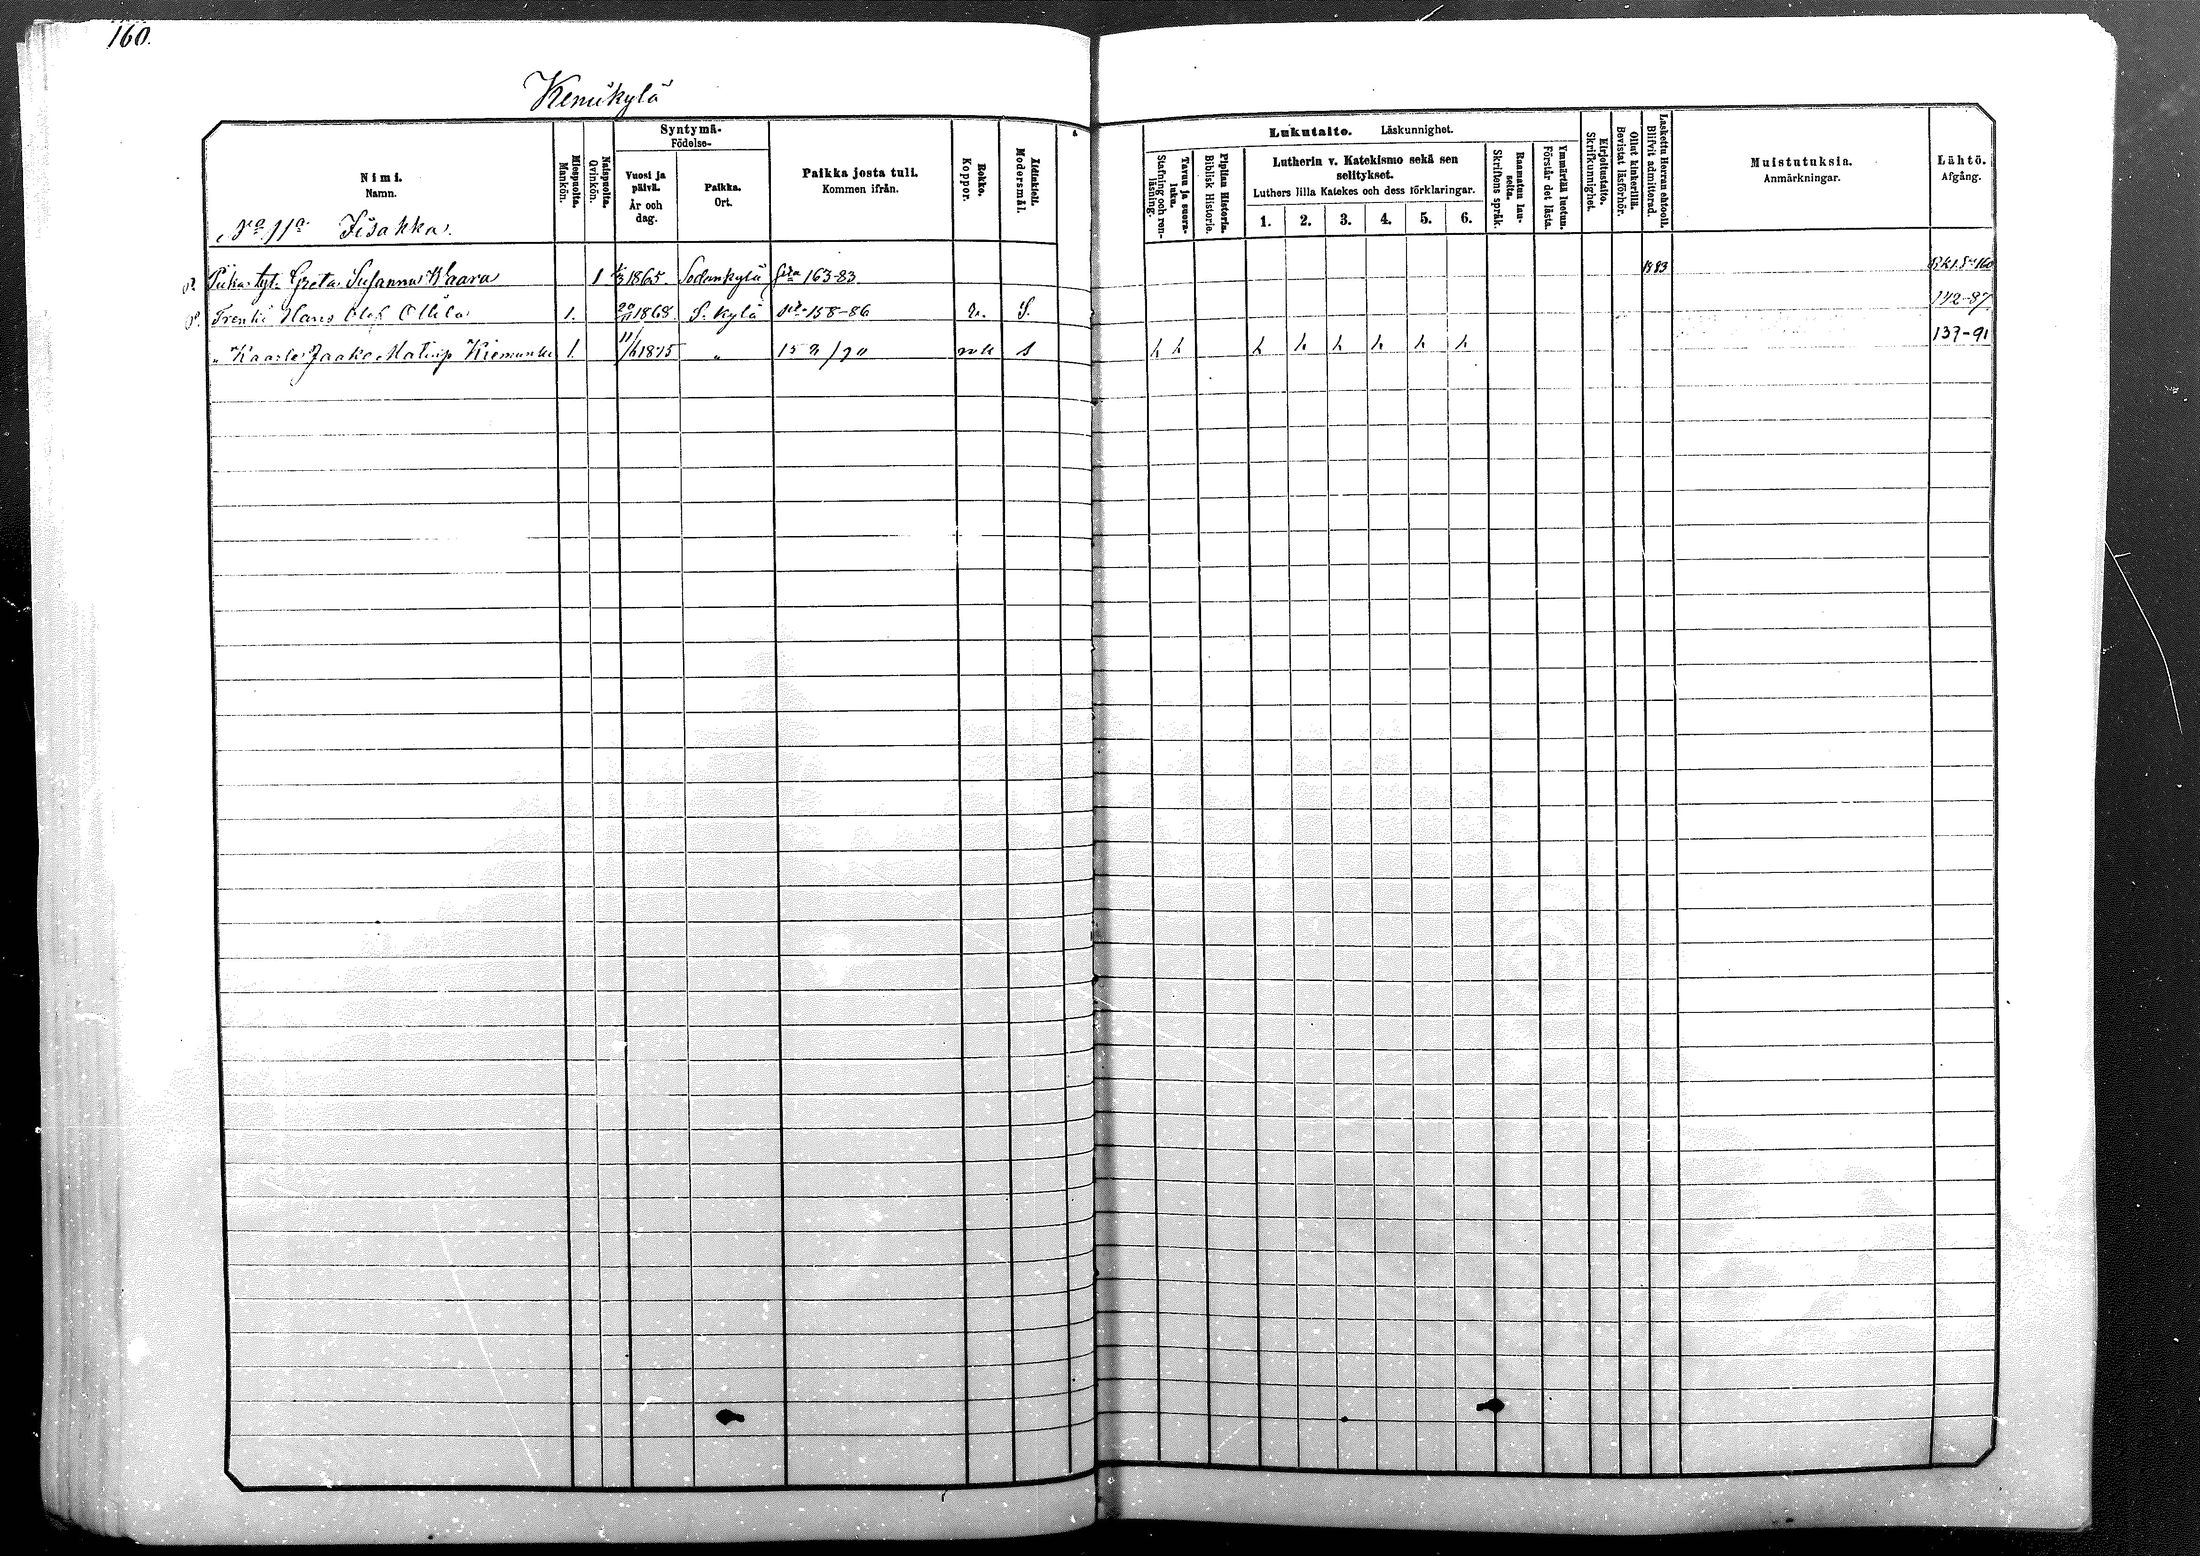 160.
Kemikylä
Nimi.
Namn.
Miespuolta.
Mankön.
Naispuolta.
Qvinkön.
Syntymä-
Födelse-
Vuosi ja
päivä.
År och
dag.
Paikka.
Ort.
Paikka josta tuli.
Kommen ifrån.
Rokko.
Koppor.
Äidinkieli.
Modersmål.
Lukutaito. Läskunnighet.
Tavuu ja suora-
luku.
Stafning och ren-
läsning.
Piplian Historia.
Biblisk Historie.
Lutherin v. Katekismo sekä sen
selitykset.
Luthers lilla Katekes och dess förklaringar.
1. 2. 3. 4. 5. 6.
Raamatun lau-
seita.
Skriftens språk.
Ymmärtää luetun.
Förstår det lästa.
Kirjoitustaito.
Skrifkunnighet.
Ollut kinkerillä.
Bevistat läsförhör.
Laskettu Herran ehtooll.
Blifvit admitterad.
Muistutuksia.
Anmärkningar.
Lähtö.
Afgång.
No 11a Iisakka.
Piika Greta Susanna Waara 1 1865. Sodankylä 163-83 1883 160
Trenki Hans Olof Ollila 1. 1868 S. kylä 158-86 S. 142-87
" Kaarle Jaakko Matinp. 1. 11/ 1875 " 15 /90 s h h h h h h h h 137-91